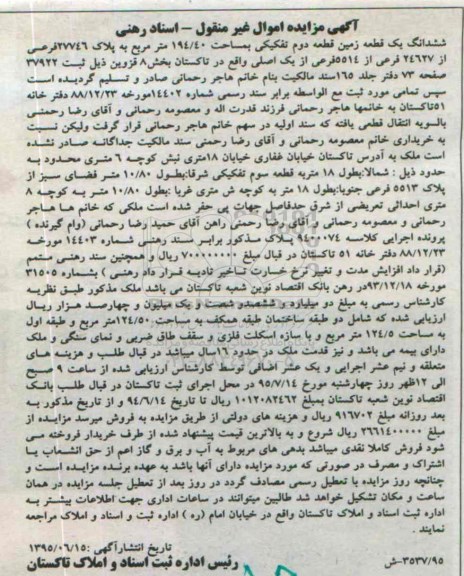 آگهی مزایده اموال غیر منقول - اسناد رهنی
ششدانگ یک قطعه زمین قطعه دوم تفکیکی بمساحت ۱۹۴/۴۰ متر مربع به پلاک ۲۷۷۴۶فرعی
از ۲۴۶۲۷ از ۵۵۱۴فرعی از یک اصلی واقع در تاکستان بخش۸ قزوین ذیل ثبت ۳۷۹۲۲
صفحه ۷۳ دفتر جلد ۱۶۵سند مالکیت بنام خانم هاجر رحمانی صادر و تسلیم گردیده است
سپس تمامی مورد ثبت مع الواسطه برابر سند رسمی شماره ۱۴۴۰۲مورخه ۸۸/۱۲/۲۳ دفتر خانه
۵۱تاکستان به خانمها هاجر رحمانی فرزند قدرت اله و معصومه رحمانی و آقای رضا رحمتی
بالسویه انتقال قطعی یافته که سند اولیه در سهم خانم هاجر رحمانی قرار گرفت ولیکن نسبت
به خریداری خانم معصومه رحمانی و آقای رضا رحمتی سند مالکیت جداگانه صادر نشده
است ملک به آدرس تاکستان خیابان غفاری خیابان ۱۸متری نبش کوچه ۶ متری محدود به
حدود ذیل : شمالا:بطول ۱۸ متربه قطعه سوم تفکیکی شرقا:بطول ۱۰/۸۰ متر فضای سبز از
پلاک ۵۵۱۳ فرعی جنوبا:بطول ۱۸ متر به کوچه ش متری غربا :بطول ۱۰/۸۰ متر به کوچه ۸
متری احداثی تعریضی از شرق حدفاصل جهات پی حفر شده است ملکی که خانم ها هاجر
رحمانی و معصومه رحمانی و آقای رضا رحمتی راهن آقای حمید رضا رحمانی (وام گیرنده )
پرونده اجرایی کلاسه ۹۴۰۰۰۷۴ پلاک مذکور برابر سند رهنی شماره ۱۴۴۰۳ مورخه
۸۸/۱۲/۲۳ دفتر خانه ۵۱ تاکستان در قبال مبلغ ۷۰۰۰۰۰۰۰۰ ریال و همچنین سند رهنی متمم
(قرار داد افزایش مدت و تغییر نرخ خسارت تاخیر تادیه قرار داد رهنی ) بشماره ۳۱۵۰۵
مورخه ۹۳/۱۲/۱۸در رهن بانک اقتصاد نوین شعبه تاکستان می باشد ملک مذکور طبق نظریه
کارشناس رسمی به مبلغ دو میلیارد و ششصد و شصت و یک میلیون و چهارصد هزار ریال
ارزیابی شده که شامل دو طبقه ساختمان طبقه همکف به مساحت:۱۲۴/۵۰متر مربع و طبقه اول
به مساحت ۱۲۴/۵ متر مربع و با سازه اسکلت فلزی و سقف طاق ضربی و نمای سنگی و ملک
دارای بیمه می باشد و نیز قدمت ملک در حدود ۱۶سال میباشد در قبال طلب و هزینه های
متعلقه و نیم عشر اجرایی و یک عشر اضافی توسط کارشناس ارزیابی شده از ساعت ۹ صبح
الی ۱۲ظهر روز چهارشنبه مورخ ۹۵/۷/۱۴ در محل اجرای ثبت تاکستان در قبال طلب بانک
اقتصاد نوین شعبه تاکستان بمبلغ ۱۰۱۲۰۸۲۴۶۲ ریال تا تاریخ ۹۴/۶/۱۴ و از تاریخ مذکور به
بعد روزانه مبلغ ۹۱۶۷۰۲ ریال و هزینه های دولتی از طریق مزایده به فروش میرسد مزایده از
مبلغ ۲۶۶۱۴۰۰۰۰۰ ریال شروع و به بالاترین قیمت پیشنهاد شده از طرف خریدار فروخته می
شود فروش کاملا نقدی میباشد بدهی های مربوط به آب و برق و گاز اعم از حق انشعاب یا
اشتراک و مصرف در صورتی که مورد مزایده دارای آنها باشد به عهده برنده مزایده است و
چنانچه روز مزایده با تعطیل رسمی مصادف گردد در روز بعد از تعطیل جلسه مزایده در همان
ساعت و مکان تشکیل خواهد شد طالبین میتوانند در ساعات اداری جهت اطلاعات بیشتر به
اداره ثبت اسناد و املاک تاکستان واقع در خیابان امام (ره ) اداره ثبت و اسناد و املاک مراجعه
نمایند .
تاریخ انتشارآگهی :۱۳۹۵/۰۶/۱۵
۳۵۳۷/۹۵-ش رئیس اداره ثبت اسناد و املاک تاکستان